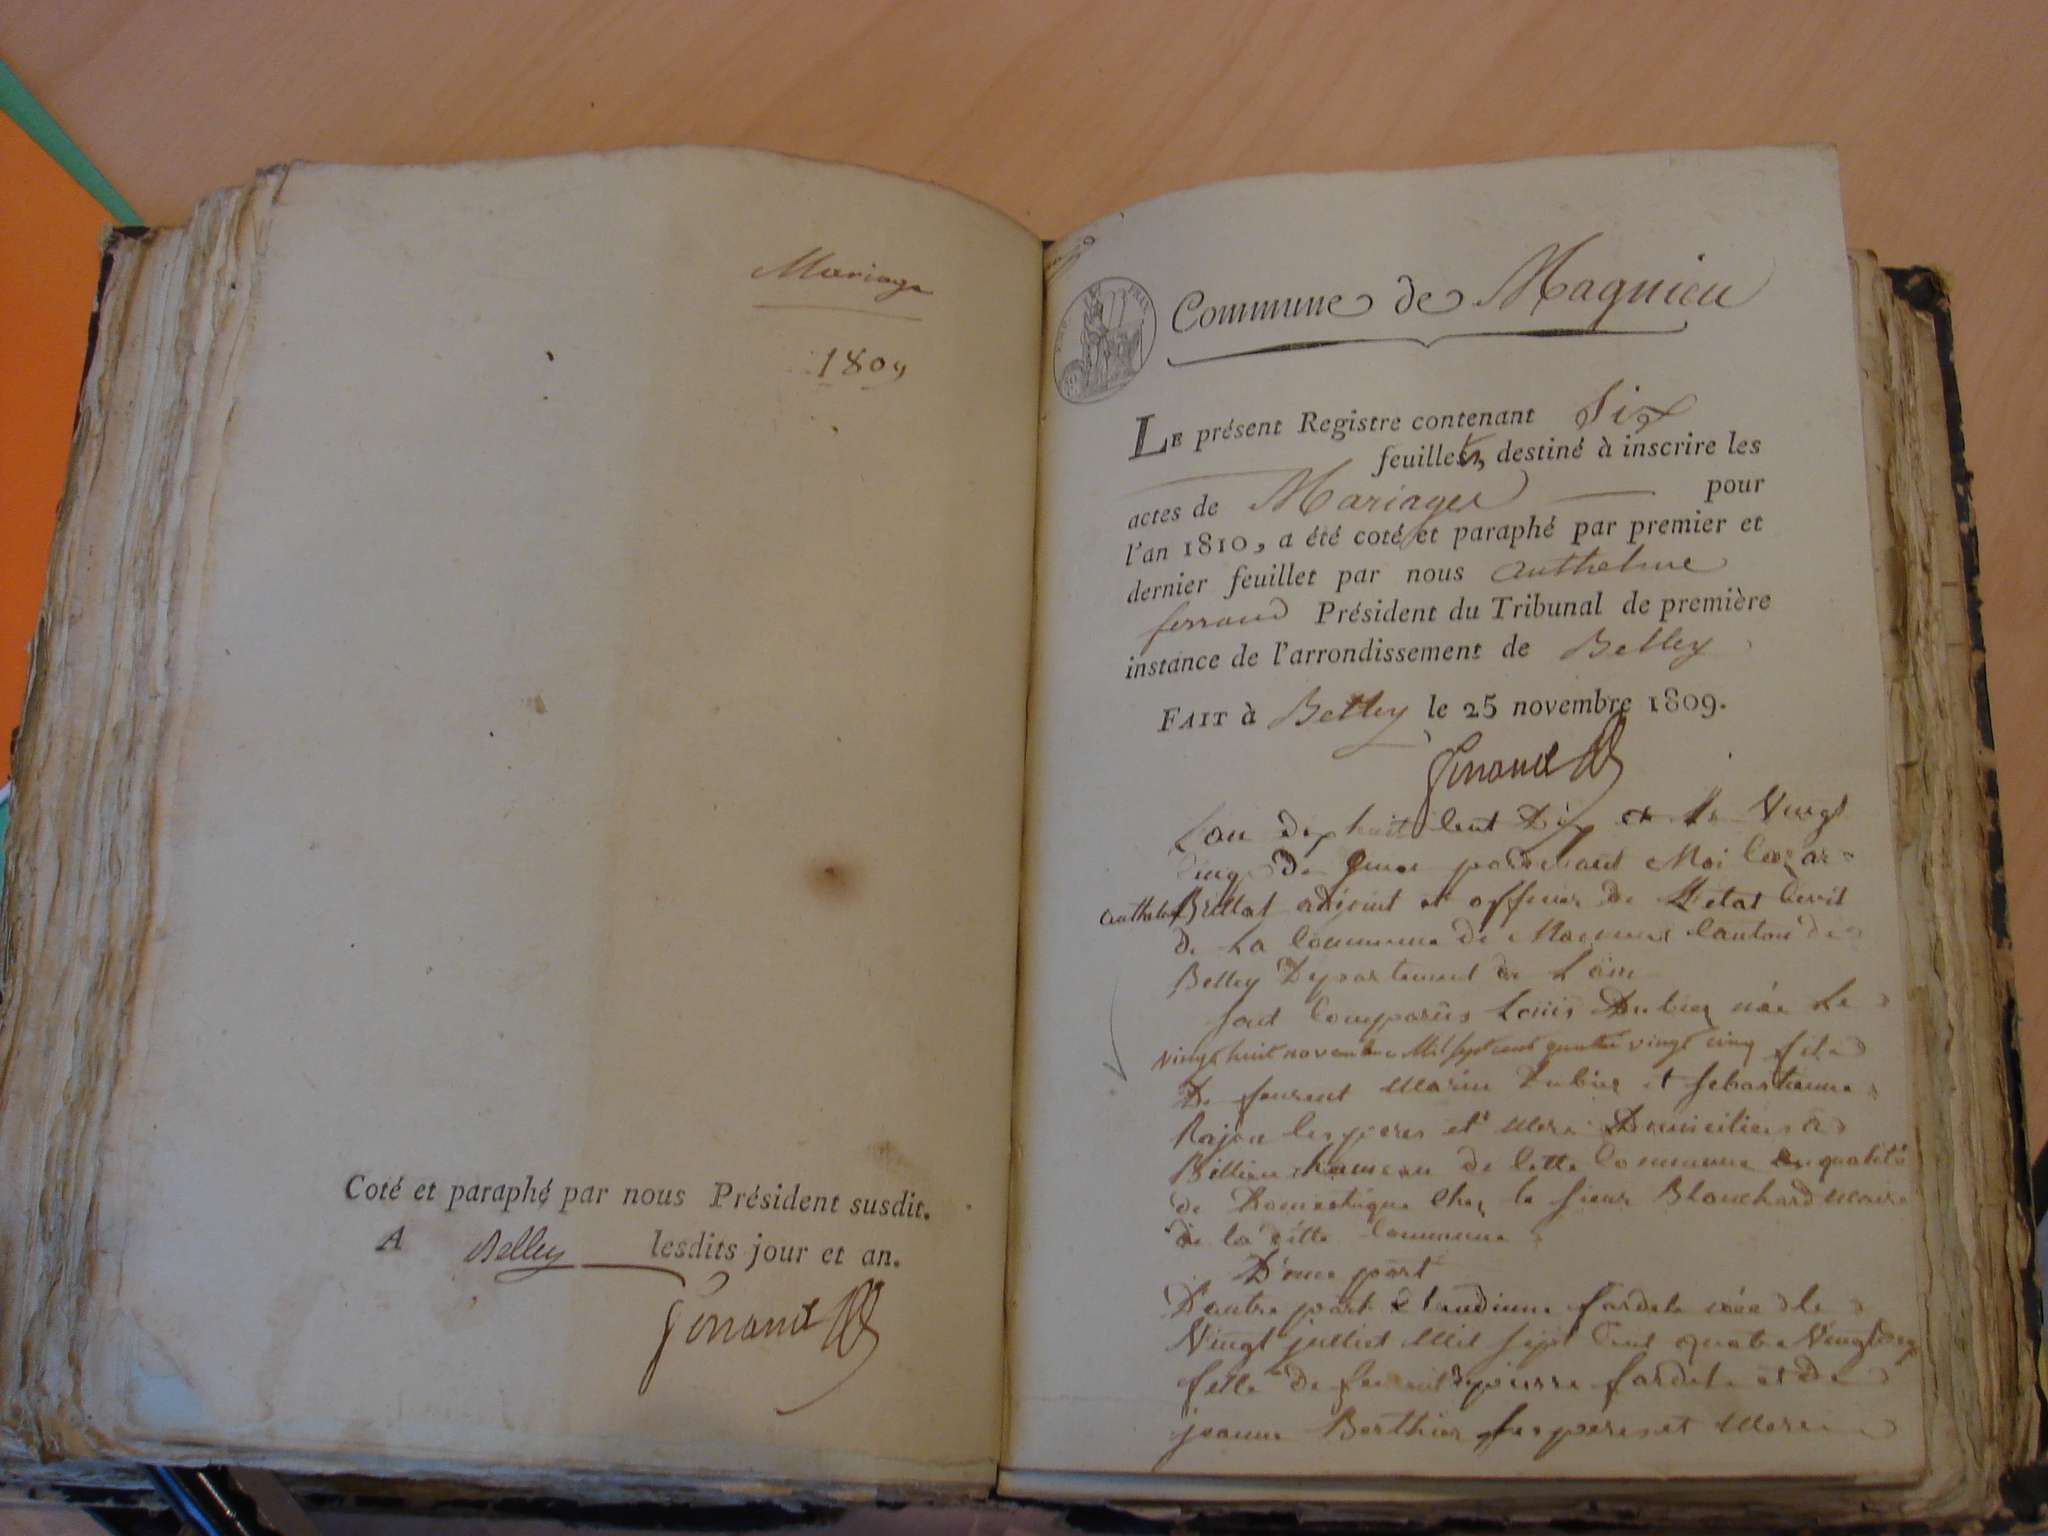 Mariage
1809
Coté et paraphé par nous Président susdit.
A Belley lesdits jour et an.
Ferrand
Commune de Magnieu
LE présent Registre contenant Six
feuillets, destiné à inscrire les
actes de Mariages pour
l'an 1810, a été coté et paraphé par premier et
dernier feuillet par nous Anthelme
ferrand Président du Tribunal de première
instance de l'arrondissement de Belley
FAIT à Belley le 25 novembre 1809.
Ferrand
L'an dix huit Cent Dix et le Vingt
Cinq De pardevant Moi
Billat adjoint et officier de L'etat Civil
de La Commune de Magnieu Canton de
Belley Departement de L'ain
sont Comparus Louis Dubier née Le
vingt huit novembre Mil sept cent quatre vingt cinq fils
De Marin Dubier et sebastienne
Rajon les peres et Mere Domicilies a
Billieu hameau de Cette Commune en qualité
de Domestique Chez le sieur Blanchard Maire
de la ditte Commune
D'une part
D'autre part Claudine fardel née le
Vingt juillet Mil sept Cent quatre Vingt
fille De pierre fardel et de
jeanne Berthier ses peres et Mere